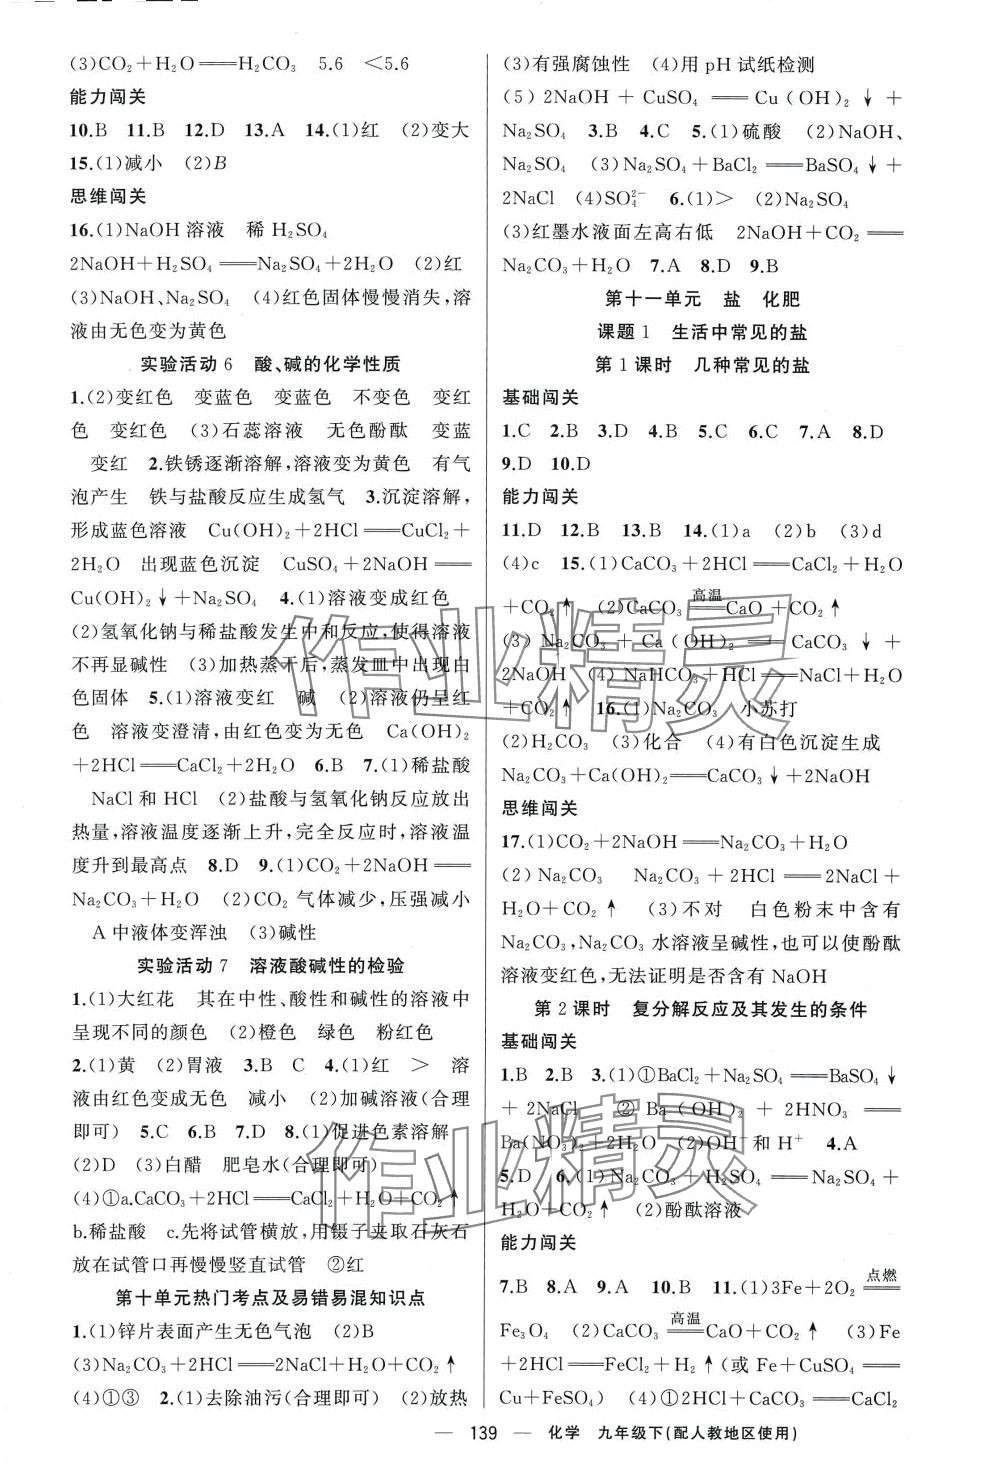 (3)CO₂+H₂O══H₂CO₃ 5.6 <5.6
能力闯关
10.B 11.B 12.D 13.A 14.(1)红 (2)变大
15.(1)减小 (2)B
思维闯关
16.(1)NaOH 溶液 稀 H₂SO₄
2NaOH+H₂SO₄══Na₂SO₄+2H₂O (2)红
(3)NaOH、Na₂SO₄ (4)红色固体慢慢消失,溶
液由无色变为黄色
实验活动 6 酸、碱的化学性质
1.(2)变红色 变蓝色 变蓝色 不变色 变红
色 变红色 (3)石蕊溶液 无色酚酞 变蓝
变红 2.铁锈逐渐溶解,溶液变为黄色 有气
泡产生 铁与盐酸反应生成氢气 3.沉淀溶解,
形成蓝色溶液 Cu(OH)₂+2HCl══CuCl₂+
2H₂O 出现蓝色沉淀 CuSO₄+2NaOH══
Cu(OH)₂↓+Na₂SO₄ 4.(1)溶液变成红色
(2)氢氧化钠与稀盐酸发生中和反应,使得溶液
不再显碱性 (3)加热蒸干后,蒸发皿中出现白
色固体 5.(1)溶液变红 碱 (2)溶液仍呈红
色 溶液变澄清,由红色变为无色 Ca(OH)₂
+2HCl══CaCl₂+2H₂O 6.B 7.(1)稀盐酸
NaCl 和 HCl (2)盐酸与氢氧化钠反应放出
热量,溶液温度逐渐上升,完全反应时,溶液温
度升到最高点 8.D 9.(1)CO₂+2NaOH══
Na₂CO₃+H₂O (2)CO₂ 气体减少,压强减小
A 中液体变浑浊 (3)碱性
实验活动 7 溶液酸碱性的检验
1.(1)大红花 其在中性、酸性和碱性的溶液中
呈现不同的颜色 (2)橙色 绿色 粉红色
2.(1)黄 (2)胃液 3.B C 4.(1)红 > 溶
液由红色变成无色 减小 (2)加碱溶液(合理
即可) 5.C 6.B 7.D 8.(1)促进色素溶解
(2)D (3)白醋 肥皂水(合理即可)
(4)①a.CaCO₃+2HCl══CaCl₂+H₂O+CO₂↑
b.稀盐酸 c.先将试管横放,用镊子夹取石灰石
放在试管口再慢慢竖直试管 ②红
第十单元热门考点及易错易混知识点
1.(1)锌片表面产生无色气泡 (2)B
(3)Na₂CO₃+2HCl══2NaCl+H₂O+CO₂↑
(4)①③ 2.(1)去除油污(合理即可) (2)放热
(3)有强腐蚀性 (4)用 pH 试纸检测
(5) 2NaOH + CuSO₄ ══ Cu(OH)₂↓ +
Na₂SO₄ 3.B 4.C 5.(1)硫酸 (2)NaOH、
Na₂SO₄ (3)Na₂SO₄+BaCl₂══BaSO₄↓+
2NaCl (4)SO₄²⁻ 6.(1)> (2)Na₂SO₄
(3)红墨水液面左高右低 2NaOH+CO₂══
Na₂CO₃+H₂O 7.A 8.D 9.B
第十一单元 盐 化肥
课题 1 生活中常见的盐
第 1 课时 几种常见的盐
基础闯关
1.C 2.B 3.D 4.B 5.C 6.C 7.A 8.D
9.D 10.D
能力闯关
11.D 12.B 13.B 14.(1)a (2)b (3)d
(4)c 15.(1)CaCO₃+2HCl══CaCl₂+H₂O
+CO₂↑ (2)CaCO₃ 高温══ CaO+CO₂↑
(3) Na₂CO₃ + Ca(OH)₂ ══ CaCO₃↓ +
2NaOH (4) NaHCO₃+HCl══NaCl+H₂O
+CO₂↑ 16.(1)Na₂CO₃ 小苏打
(2)H₂CO₃ (3)化合 (4)有白色沉淀生成
Na₂CO₃+Ca(OH)₂══CaCO₃↓+2NaOH
思维闯关
17.(1)CO₂+2NaOH══Na₂CO₃+H₂O
(2)Na₂CO₃ Na₂CO₃+2HCl══2NaCl+
H₂O+CO₂↑ (3)不对 白色粉末中含有
Na₂CO₃,Na₂CO₃ 水溶液呈碱性,也可以使酚酞
溶液变红色,无法证明是否含有 NaOH
第 2 课时 复分解反应及其发生的条件
基础闯关
1.B 2.B 3.(1)①BaCl₂+Na₂SO₄══BaSO₄↓
+ 2NaCl ② Ba(OH)₂ + 2HNO₃ ══
Ba(NO₃)₂+2H₂O (2)OH⁻和 H⁺ 4.A
5.D 6.(1)Na₂CO₃+H₂SO₄══Na₂SO₄+
H₂O+CO₂↑ (2)酚酞溶液
能力闯关
7.B 8.A 9.A 10.B 11.(1)3Fe+2O₂ 点燃══
Fe₃O₄ (2)CaCO₃ 高温══ CaO+CO₂↑ (3)Fe
+2HCl══FeCl₂+H₂↑(或 Fe+CuSO₄══
Cu+FeSO₄) (4)①2HCl+CaCO₃══CaCl₂
— 139 — 化学 九年级下(配人教地区使用)
作业精灵
作业精灵